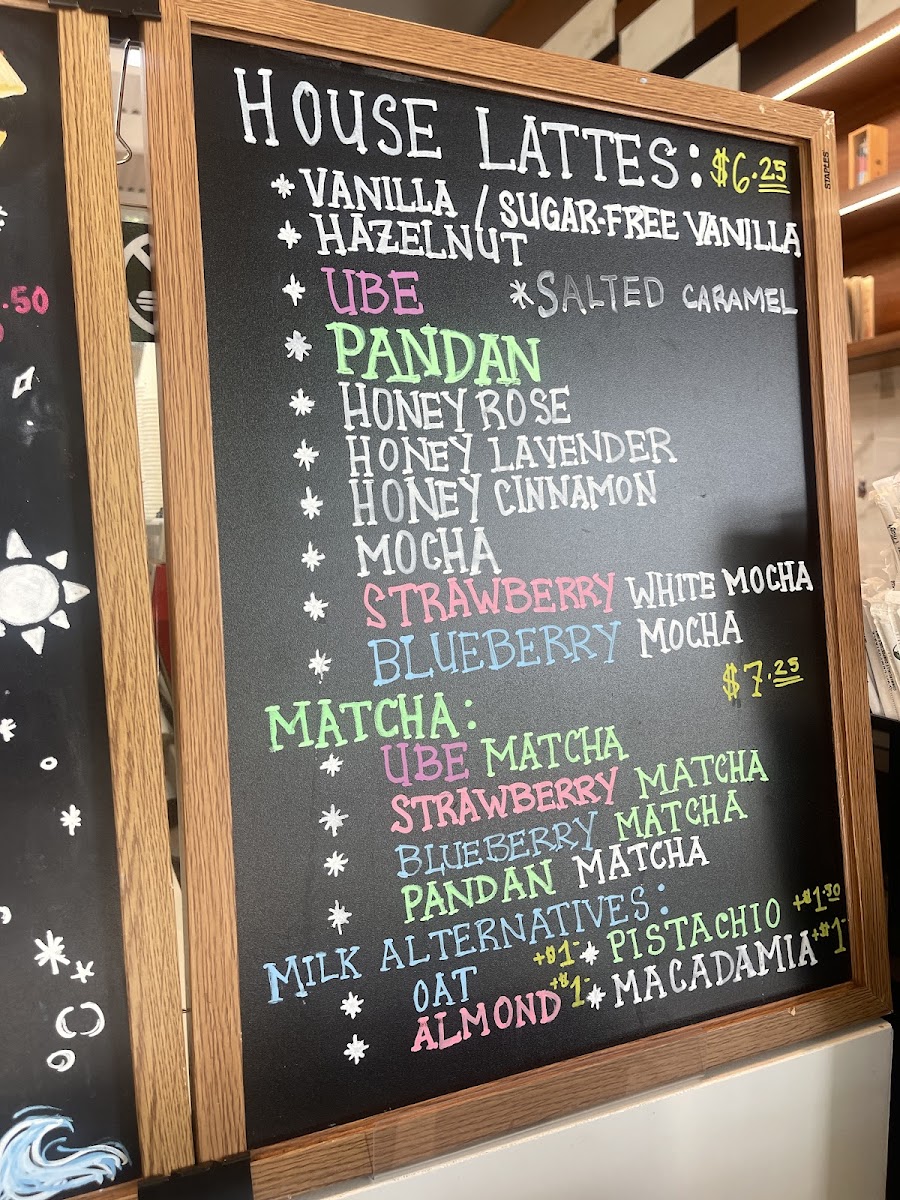 HOUSE LATTES: $6.25
* VANILLA / SUGAR-FREE VANILLA
* HAZELNUT
* UBE * SALTED CARAMEL
* PANDAN
* HONEY ROSE
* HONEY LAVENDER
* HONEY CINNAMON
* MOCHA
* STRAWBERRY WHITE MOCHA
* BLUEBERRY MOCHA
MATCHA: $7.25
* UBE MATCHA
* STRAWBERRY MATCHA
* BLUEBERRY MATCHA
* PANDAN MATCHA
MILK ALTERNATIVES:
* OAT +$1- * PISTACHIO +$1.30
* ALMOND +$1- * MACADAMIA +$1-
STAPLES
.50